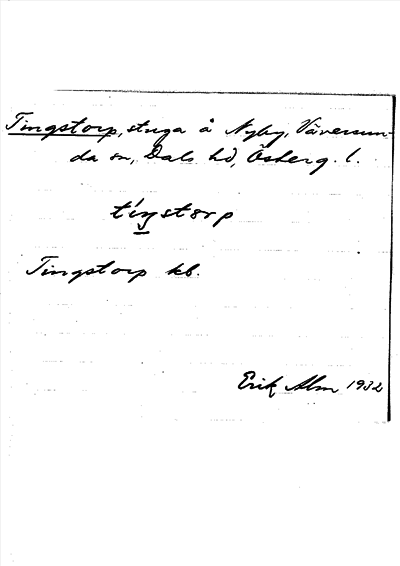 Tingstorp, stuga å Nyby, Väversun-
da sn, Dals hd, Österg. l.
tiŋstorp
Tingstorp kb.
Erik Alm 1932